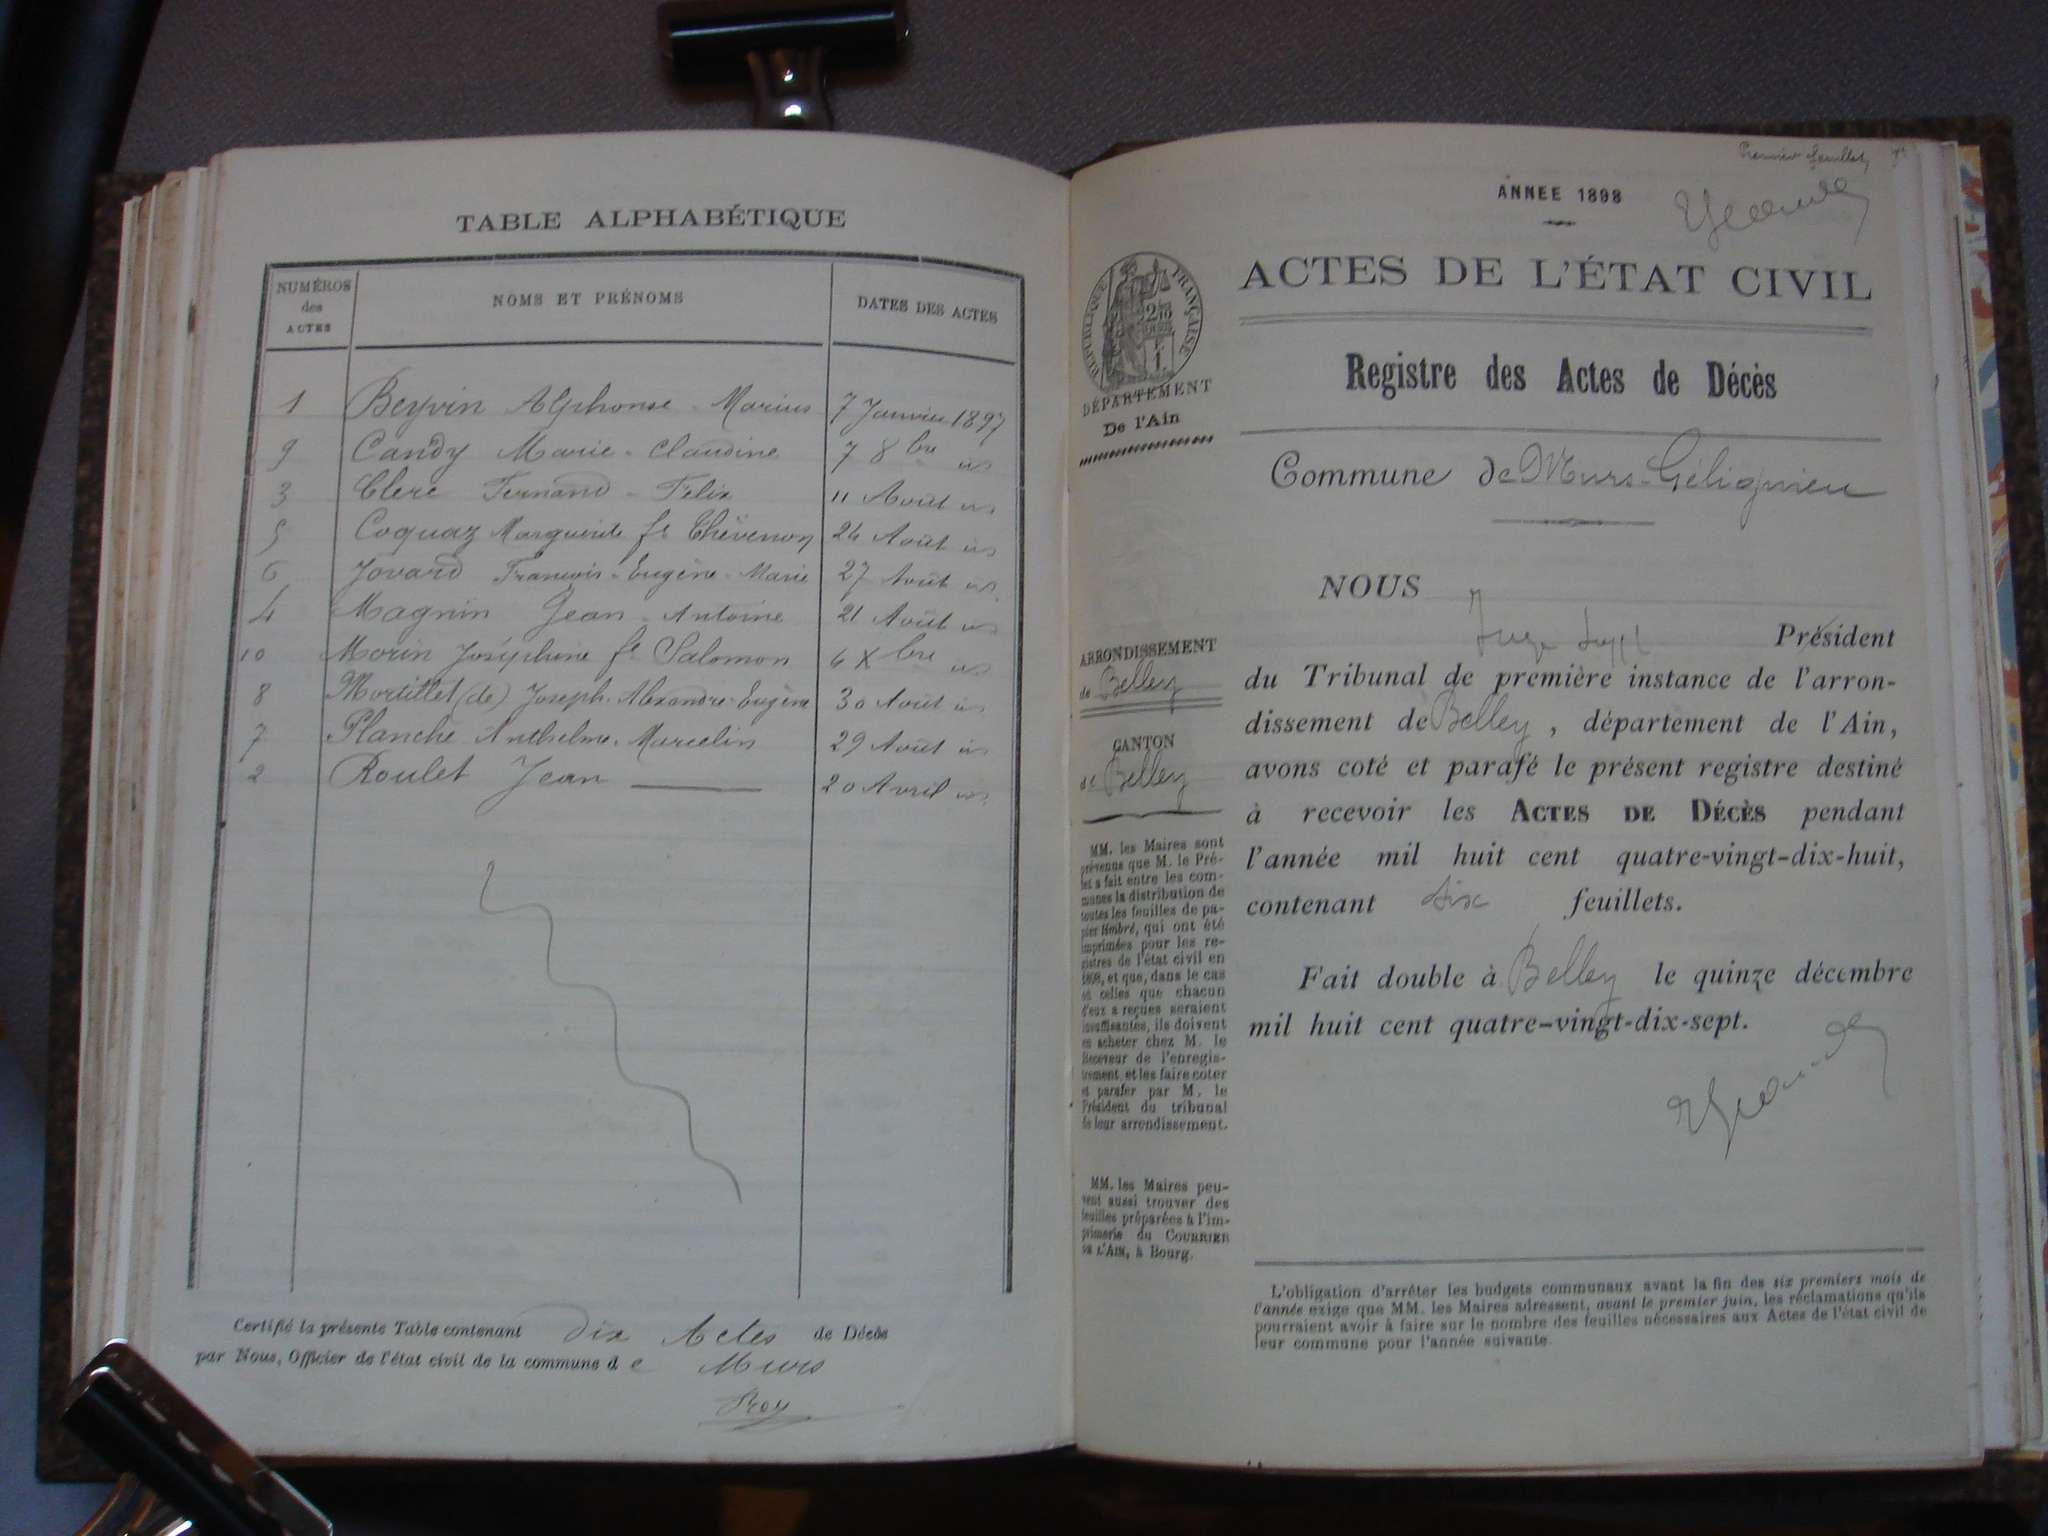 TABLE ALPHABÉTIQUE
NUMÉROS des ACTES
NOMS ET PRÉNOMS
DATES DES ACTES
1 Beyvin Alphonse-Marius 7 Janvier 1897
9 Candy Marie-Claudine 7 8bre us
3 Clerc Fernand-Félix 11 Août us
5 Coquaz Marguerite fe Thévenon 24 Août us
6 Jovard François-Eugène-Marie 27 Août us
4 Magnin Jean-Antoine 21 Août us
10 Morin Joséphine fe Salomon 6 Xbre us
8 Mortillet (de) Joseph-Alexandre-Eugène 30 Août us
7 Planche Anthelme-Marcelin 29 Août us
2 Roulet Jean 20 Avril us
Certifié la présente Table contenant dix Actes de Décès
par Nous, Officier de l'état civil de la commune de Murs
Roy
Premier feuillet
ANNEE 1898
ACTES DE L'ÉTAT CIVIL
RÉPUBLIQUE FRANÇAISE
DÉPARTEMENT
De l'Ain
Registre des Actes de Décès
Commune de Murs-Gélignieu
NOUS
Juge Suppt Président
du Tribunal de première instance de l'arron-
dissement de Belley, département de l'Ain,
avons coté et parafé le présent registre destiné
à recevoir les ACTES DE DÉCÈS pendant
l'année mil huit cent quatre-vingt-dix-huit,
contenant six feuillets.
Fait double à Belley le quinze décembre
mil huit cent quatre-vingt-dix-sept.
ARRONDISSEMENT
de Belley
CANTON
de Belley
MM. les Maires sont
prévenus que M. le Pré-
fet a fait entre les com-
munes la distribution de
toutes les feuilles de pa-
pier timbré, qui ont été
imprimées pour les re-
gistres de l'état civil en
1898, et que, dans le cas
où celles que chacun
d'eux a reçues seraient
insuffisantes, ils doivent
en acheter chez M. le
Receveur de l'enregis-
trement, et les faire coter
et parafer par M. le
Président du tribunal
de leur arrondissement.
MM. les Maires peu-
vent aussi trouver des
feuilles préparées à l'im-
primerie du COURRIER
DE L'AIN, à Bourg.
L'obligation d'arrêter les budgets communaux avant la fin des six premiers mois de
l'année exige que MM. les Maires adressent, avant le premier juin, les réclamations qu'ils
pourraient avoir à faire sur le nombre des feuilles nécessaires aux Actes de l'état civil de
leur commune pour l'année suivante.